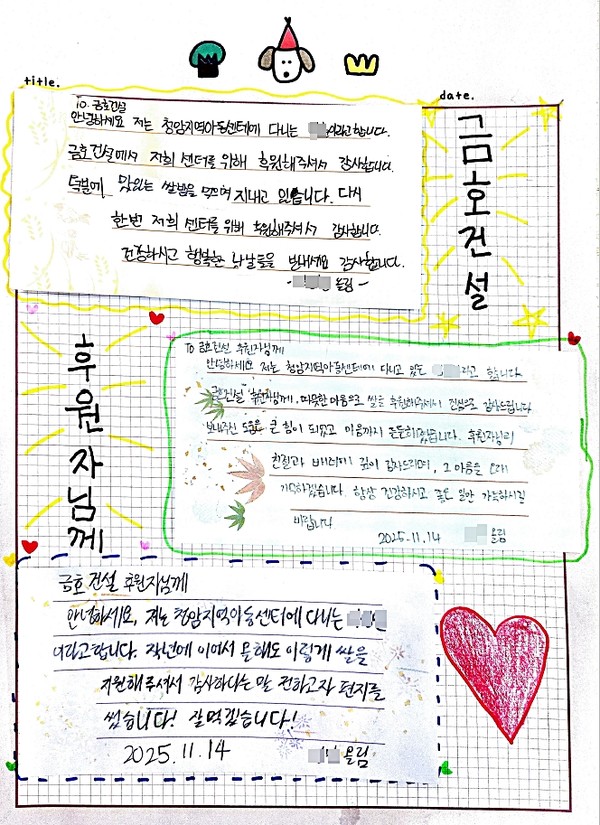 title.
date.
금호건설
To. 금호건설
안녕하세요 저는 청암지역아동센터에 다니는 이라고합니다.
금호건설에서 저희 센터를 위해 후원해주셔서 감사합니다.
덕분에 맛있는 쌀밥을 먹으며 지내고 있습니다. 다시
한번 저희 센터를 위해 후원해주셔서 감사합니다.
건강하시고 행복한 나날들을 보내세요 감사합니다.
- 올림 -
후원자님께
To 금호건설 후원자님께
안녕하세요 저는 청암지역아동센터에 다니고 있는 라고 합니다.
금호건설 후원자님께, 따뜻한 마음으로 쌀을 후원해주셔서 진심으로 감사드립니다
보내주신 도움은 큰 힘이 되었고 마음까지 든든해졌습니다. 후원자님의
친절과 배려에 깊이 감사드리며, 그 마음을 오래
기억하겠습니다. 항상 건강하시고 좋은 일만 가득하시길
바랍니다
2025.11.14 올림
금호건설 후원자님께
안녕하세요, 저는 청암지역아동센터에 다니는
이라고합니다. 작년에 이어서 올해도 이렇게 쌀을
지원해주셔서 감사하다는 말 전하고자 편지를
썼습니다! 잘먹겠습니다!
2025.11.14 올림